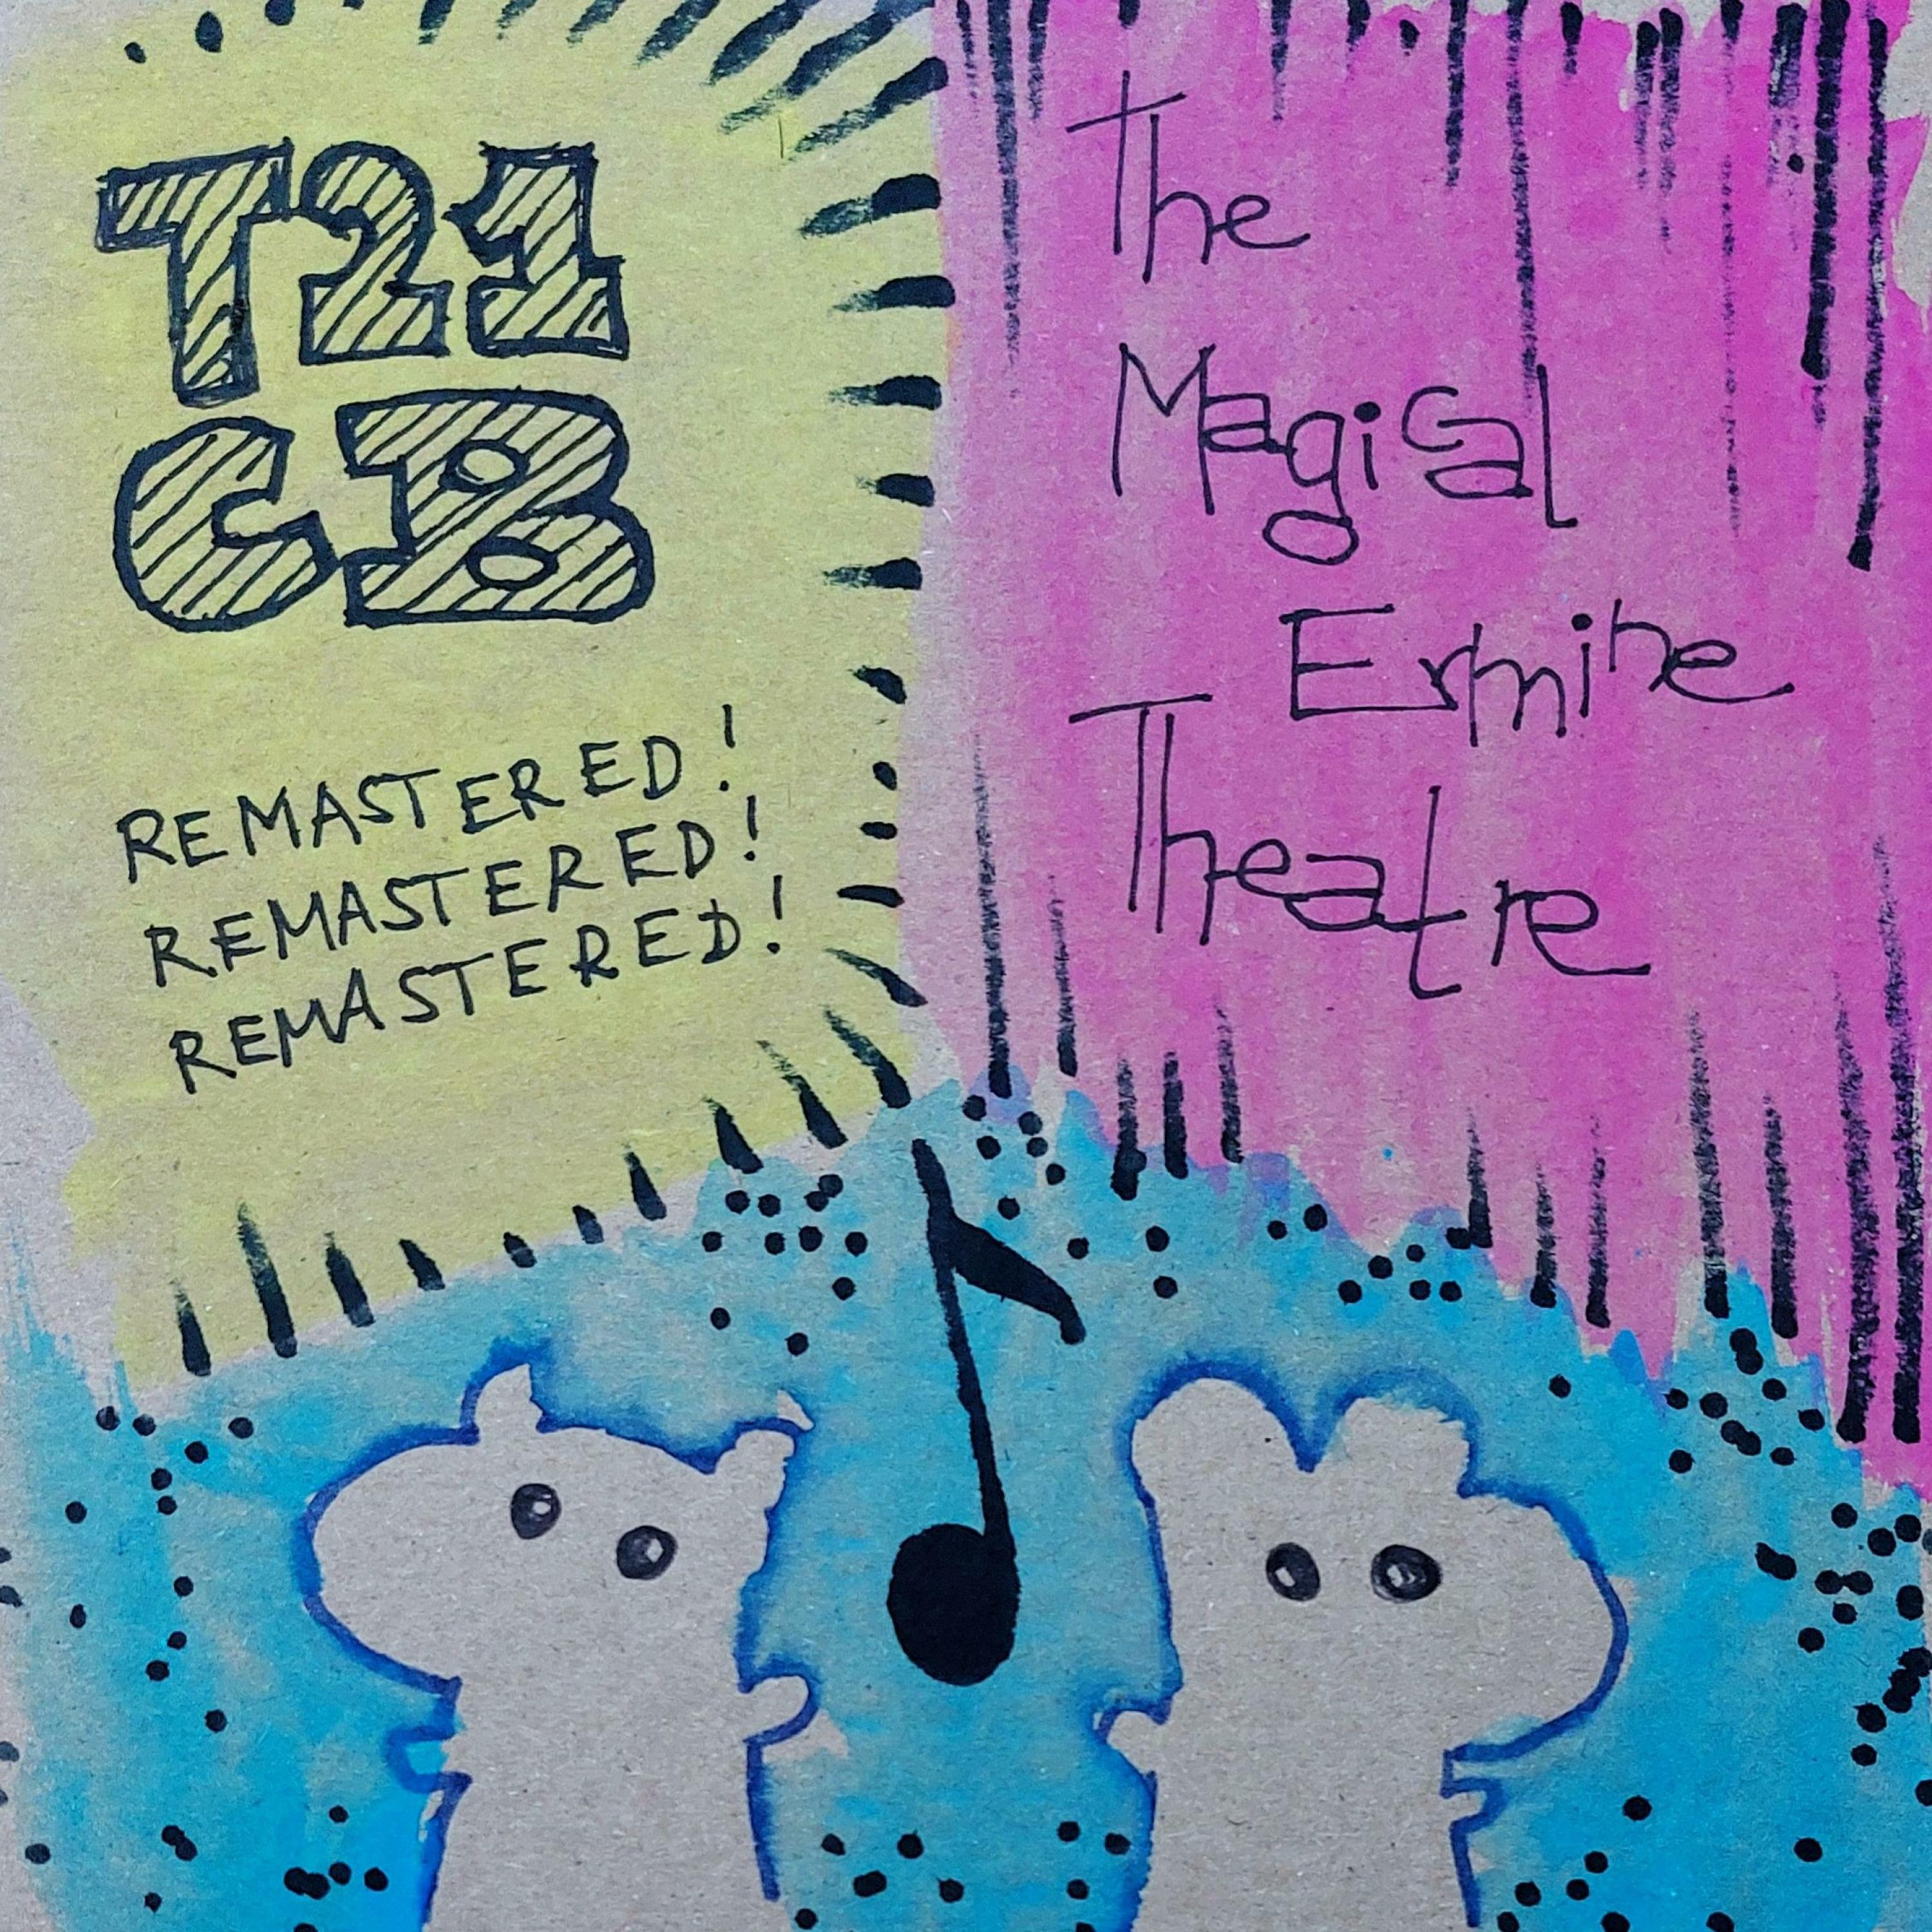 T21
CB
REMASTERED!
REMASTERED!
REMASTERED!
The
Magical
Ermine
Theatre